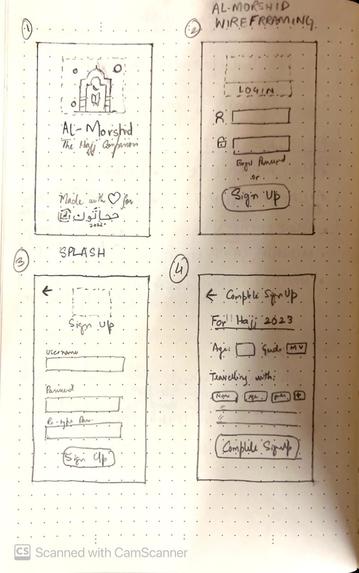 AL-MORSHID
WIREFRAMING
1
AL-Morshid
The Hajj Companion
Made with ♡ for
2
LOGIN
Forgot Password
or
Sign Up
SPLASH
3
←
Sign Up
Username
Password
Re-type Pass
Sign Up
4
← Complete Sign Up
For Hajj 2023
Age:
Travelling with:
+
Complete Signup
CS Scanned with CamScanner